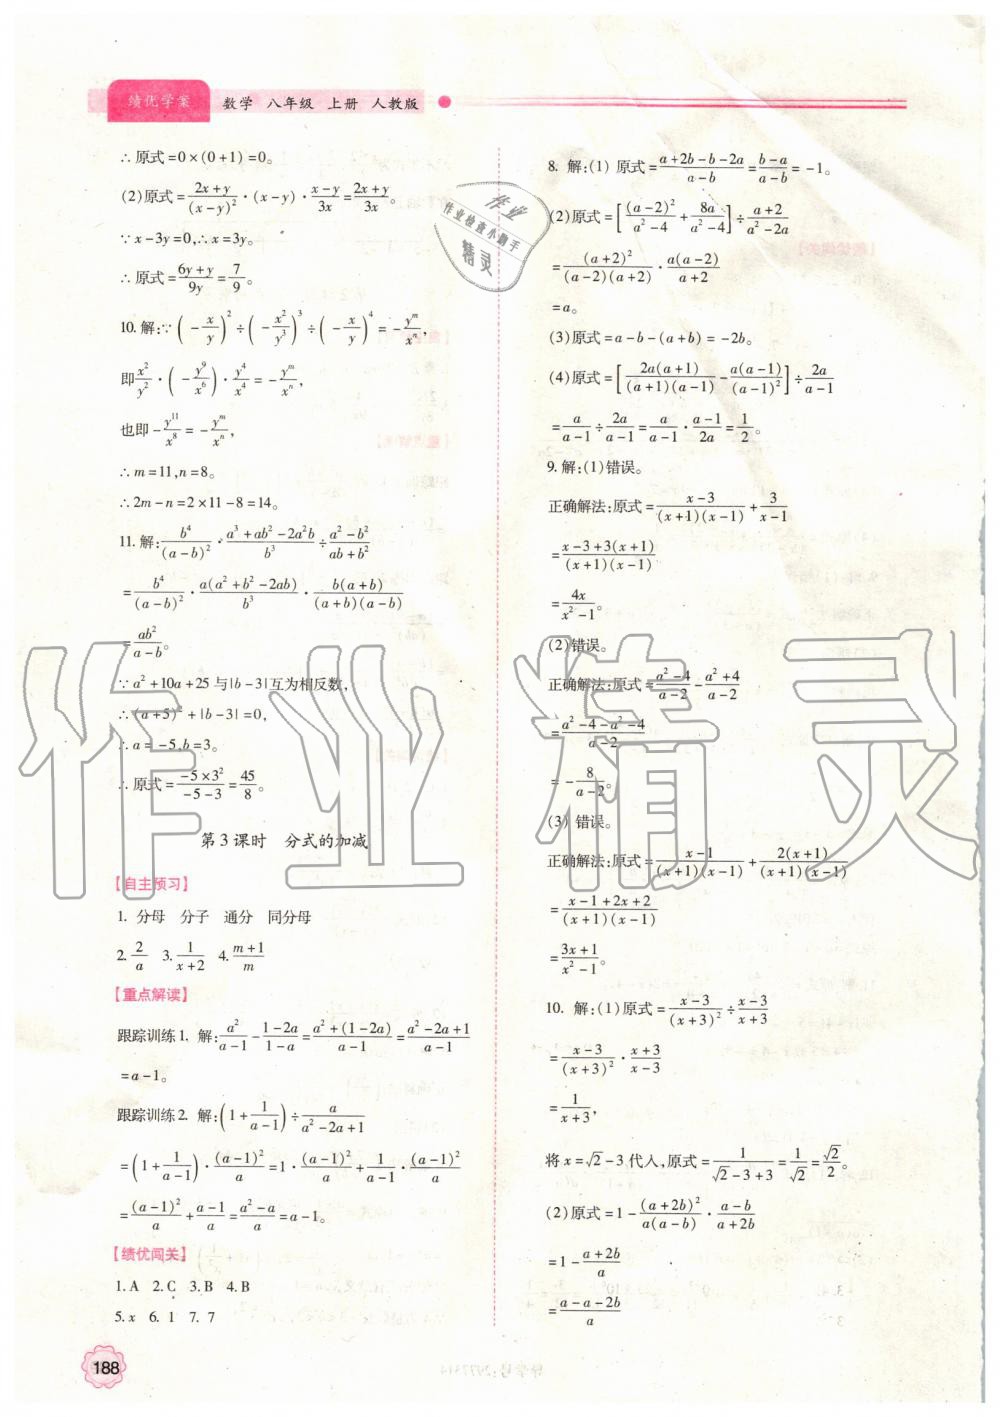 绩优学案 数学 八年级 上册 人教版
∴原式=0×(0+1)=0。
(2)原式=\frac{2x+y}{(x-y)^2}·(x-y)·\frac{x-y}{3x}=\frac{2x+y}{3x}。
∵x-3y=0,∴x=3y。
∴原式=\frac{6y+y}{9y}=\frac{7}{9}。
10. 解:∵(-\frac{x}{y})^2÷(-\frac{x^2}{y^3})^3÷(-\frac{x}{y})^4=-\frac{y^m}{x^n},
即\frac{x^2}{y^2}·(-\frac{y^9}{x^6})·\frac{y^4}{x^4}=-\frac{y^m}{x^n},
也即-\frac{y^{11}}{x^8}=-\frac{y^m}{x^n},
∴m=11,n=8。
∴2m-n=2×11-8=14。
11. 解:\frac{b^4}{(a-b)^2}·\frac{a^3+ab^2-2a^2b}{b^3}÷\frac{a^2-b^2}{ab+b^2}
=\frac{b^4}{(a-b)^2}·\frac{a(a^2+b^2-2ab)}{b^3}·\frac{b(a+b)}{(a+b)(a-b)}
=\frac{ab^2}{a-b}。
∵a^2+10a+25与|b-3|互为相反数,
∴(a+5)^2+|b-3|=0,
∴a=-5,b=3。
∴原式=\frac{-5×3^2}{-5-3}=\frac{45}{8}。
第3课时 分式的加减
【自主预习】
1. 分母 分子 通分 同分母
2. \frac{2}{a} 3. \frac{1}{x+2} 4. \frac{m+1}{m}
【重点解读】
跟踪训练1. 解:\frac{a^2}{a-1}-\frac{1-2a}{1-a}=\frac{a^2+(1-2a)}{a-1}=\frac{a^2-2a+1}{a-1}
=a-1。
跟踪训练2. 解:(1+\frac{1}{a-1})÷\frac{a}{a^2-2a+1}
=(1+\frac{1}{a-1})·\frac{(a-1)^2}{a}=1·\frac{(a-1)^2}{a}+\frac{1}{a-1}·\frac{(a-1)^2}{a}
=\frac{(a-1)^2}{a}+\frac{a-1}{a}=\frac{a^2-a}{a}=a-1。
【绩优闯关】
1. A 2. C 3. B 4. B
5. x 6. 1 7. 7
188
8. 解:(1)原式=\frac{a+2b-b-2a}{a-b}=\frac{b-a}{a-b}=-1。
(2)原式=[\frac{(a-2)^2}{a^2-4}+\frac{8a}{a^2-4}]÷\frac{a+2}{a^2-2a}
=\frac{(a+2)^2}{(a-2)(a+2)}·\frac{a(a-2)}{a+2}
=a。
(3)原式=a-b-(a+b)=-2b。
(4)原式=[\frac{2a(a+1)}{(a+1)(a-1)}-\frac{a(a-1)}{(a-1)^2}]÷\frac{2a}{a-1}
=\frac{a}{a-1}÷\frac{2a}{a-1}=\frac{a}{a-1}·\frac{a-1}{2a}=\frac{1}{2}。
9. 解:(1)错误。
正确解法:原式=\frac{x-3}{(x+1)(x-1)}+\frac{3}{x-1}
=\frac{x-3+3(x+1)}{(x+1)(x-1)}
=\frac{4x}{x^2-1}。
(2)错误。
正确解法:原式=\frac{a^2-4}{a-2}-\frac{a^2+4}{a-2}
=\frac{a^2-4-a^2-4}{a-2}
=-\frac{8}{a-2}。
(3)错误。
正确解法:原式=\frac{x-1}{(x+1)(x-1)}+\frac{2(x+1)}{(x+1)(x-1)}
=\frac{x-1+2x+2}{(x+1)(x-1)}
=\frac{3x+1}{x^2-1}。
10. 解:(1)原式=\frac{x-3}{(x+3)^2}÷\frac{x-3}{x+3}
=\frac{x-3}{(x+3)^2}·\frac{x+3}{x-3}
=\frac{1}{x+3},
将x=√2-3代入,原式=\frac{1}{√2-3+3}=\frac{1}{√2}=\frac{√2}{2}。
(2)原式=1-\frac{(a+2b)^2}{a(a-b)}·\frac{a-b}{a+2b}
=1-\frac{a+2b}{a}
=\frac{a-a-2b}{a}
作业
作业检查小助手
精灵
作业精灵